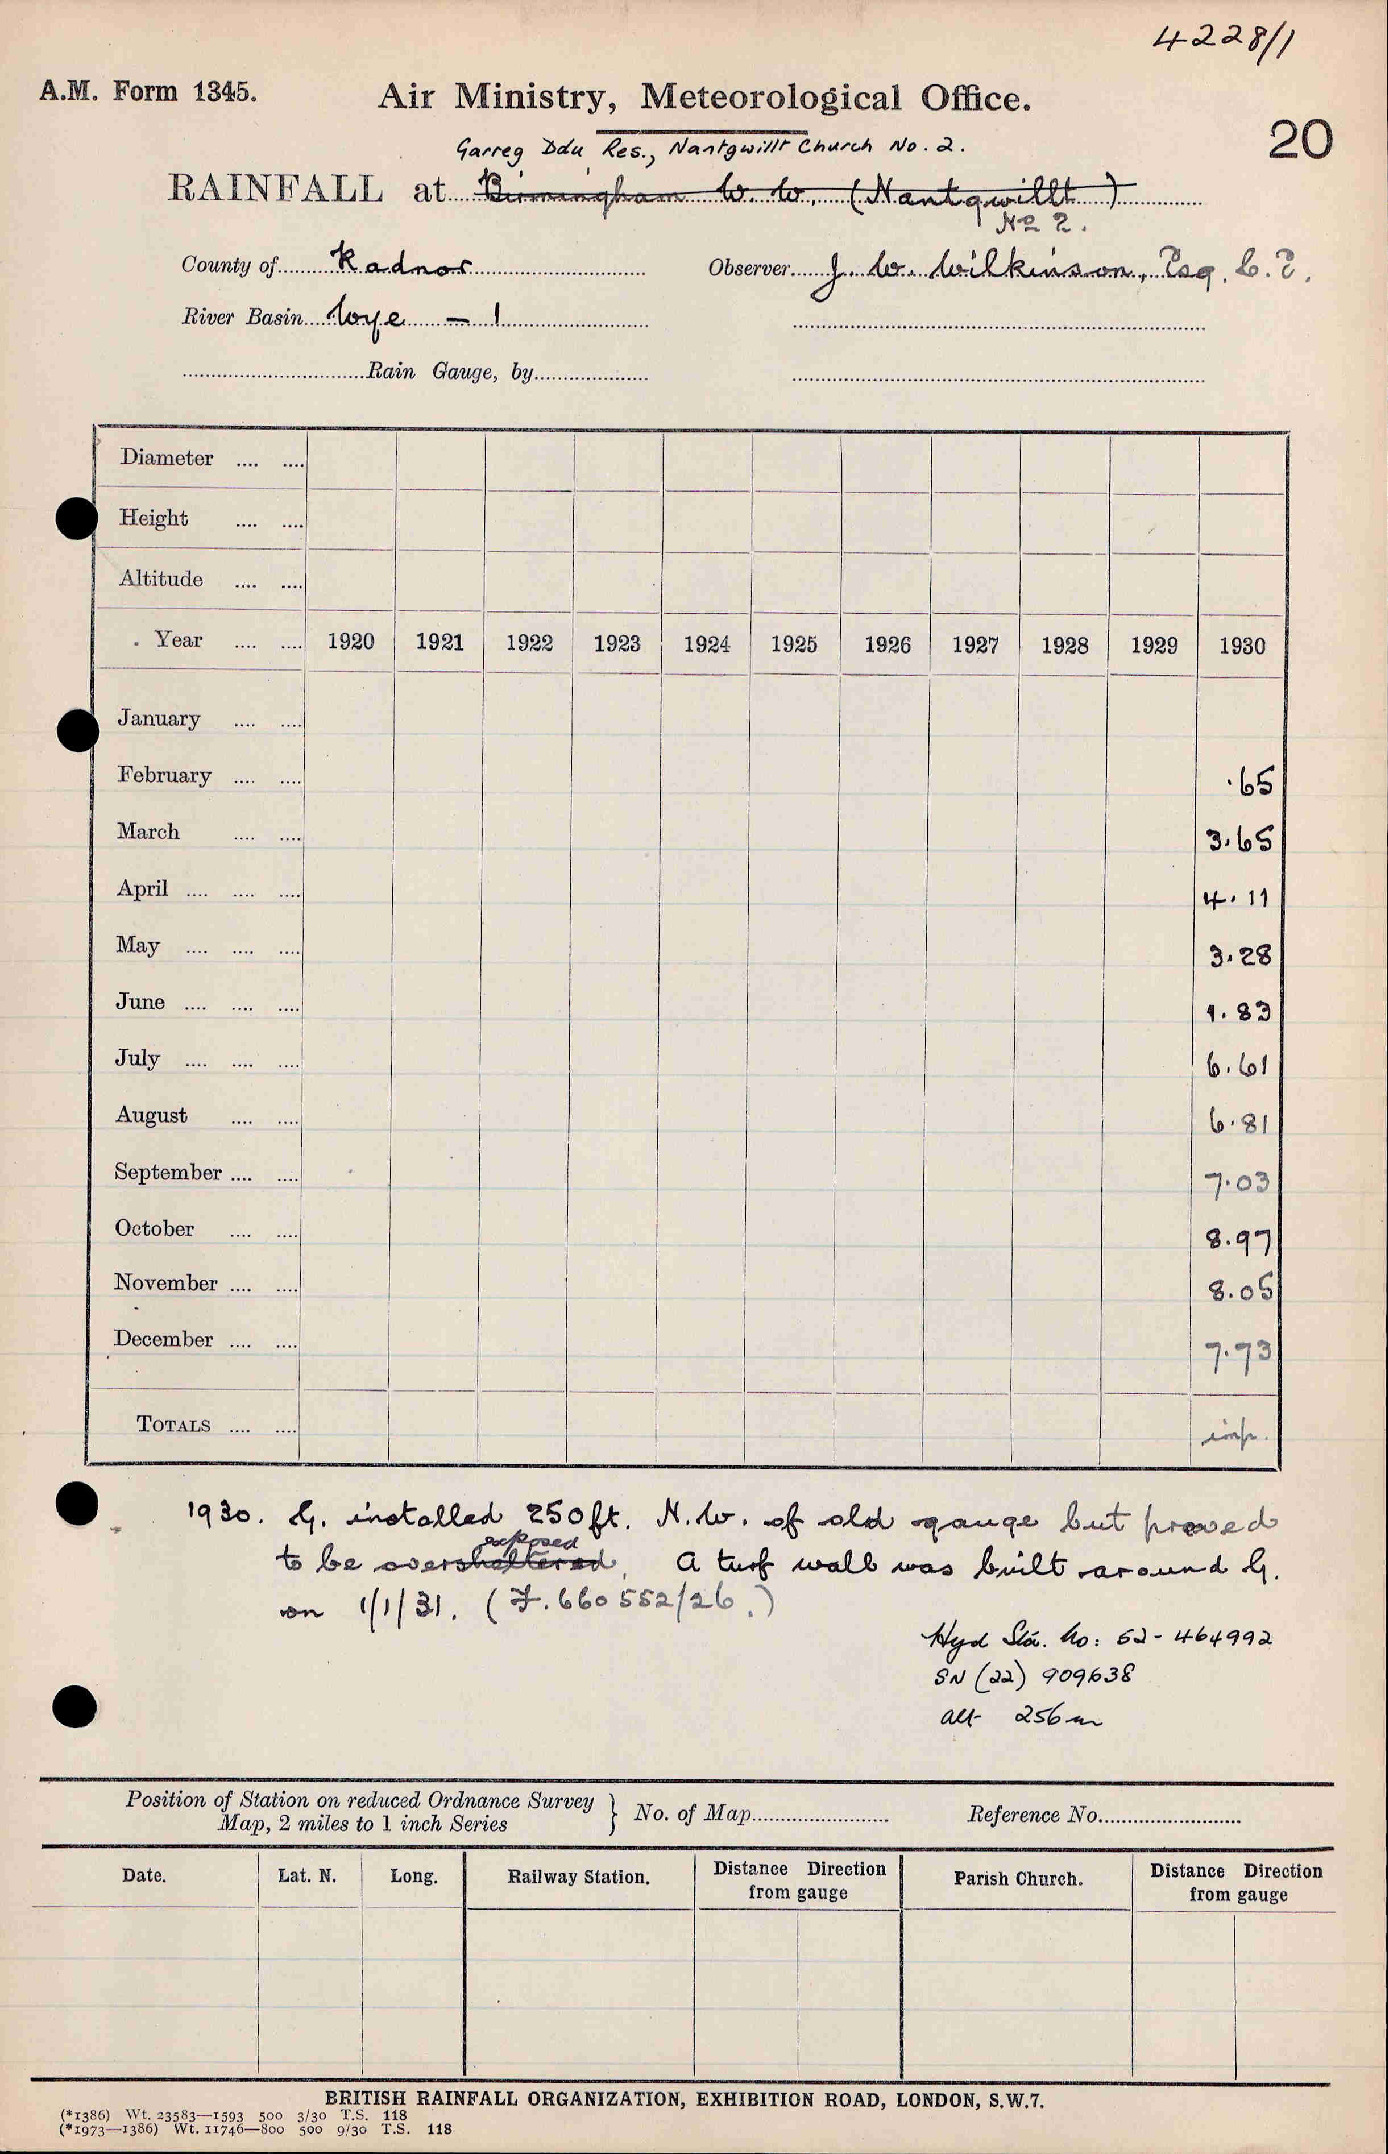 4228/1
A.M. Form 1345.
Air Ministry, Meteorological Office.
20
Garreg Ddu Res., Nantgwillt Church No. 2.
RAINFALL at Birmingham W. W. (Nantgwillt)
No 2.
County of Radnor
Observer J. W. Wilkinson, Esq. C.E.
River Basin Wye – 1
Rain Gauge, by
Diameter .... ....
Height .... ....
Altitude .... ....
Year .... .... 1920 1921 1922 1923 1924 1925 1926 1927 1928 1929 1930
January .... ....
February .... .... .65
March .... .... 3.65
April .... .... .... 4.11
May .... .... .... 3.28
June .... .... .... 1.83
July .... .... .... 6.61
August .... .... 6.81
September .... .... 7.03
October .... .... 8.97
November .... .... 8.05
December .... .... 7.73
TOTALS .... .... inp.
1930. G. installed 250ft. N.W. of old gauge but proved
exposed
to be oversheltered. A turf wall was built around G.
on 1/1/31. (F. 660552/26.)
Hyd Sta. No: 52-464992
SN (22) 909638
alt 256m
Position of Station on reduced Ordnance Survey
Map, 2 miles to 1 inch Series } No. of Map
Reference No.
Date. Lat. N. Long. Railway Station. Distance Direction from gauge Parish Church. Distance Direction from gauge
BRITISH RAINFALL ORGANIZATION, EXHIBITION ROAD, LONDON, S.W.7.
(*1386) Wt. 23583—1593 500 3/30 T.S. 118
(*1973—1386) Wt. 11746—800 500 9/30 T.S. 118